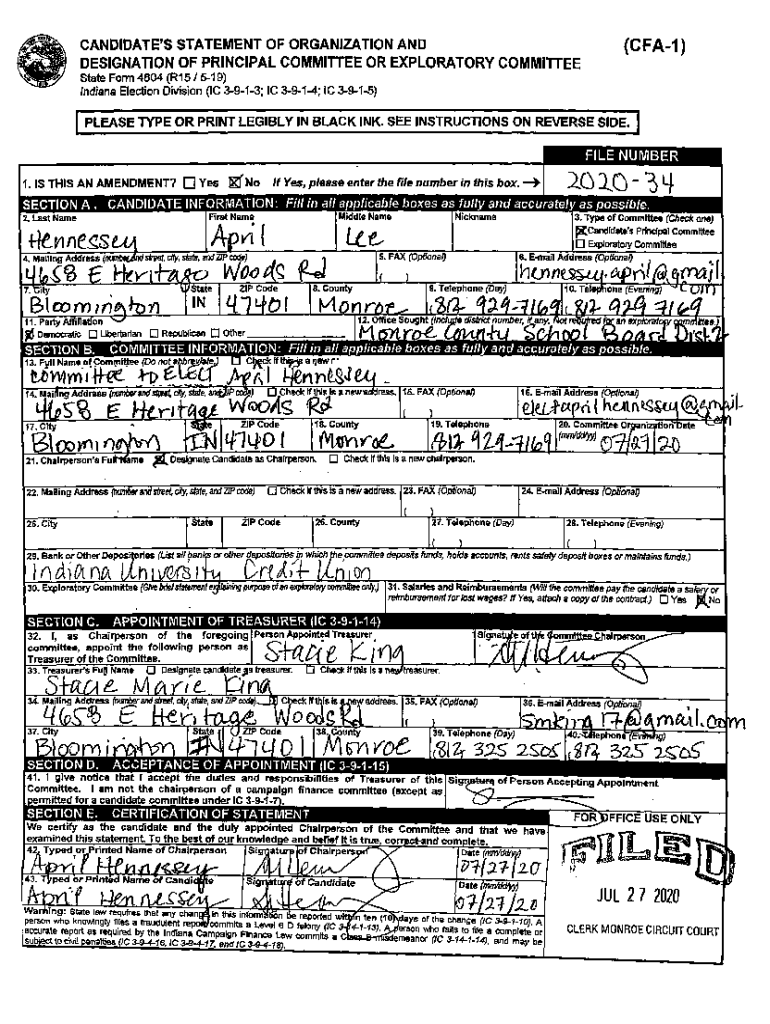 CANDIDATE'S STATEMENT OF ORGANIZATION AND (CFA-1)
DESIGNATION OF PRINCIPAL COMMITTEE OR EXPLORATORY COMMITTEE
State Form 4604 (R15 / 5-19)
Indiana Election Division (IC 3-9-1-3; IC 3-9-1-4; IC 3-9-1-5)
PLEASE TYPE OR PRINT LEGIBLY IN BLACK INK. SEE INSTRUCTIONS ON REVERSE SIDE.
FILE NUMBER
1. IS THIS AN AMENDMENT? ☐ Yes ☒ No If Yes, please enter the file number in this box. → 2020-34
SECTION A. CANDIDATE INFORMATION: Fill in all applicable boxes as fully and accurately as possible.
2. Last Name First Name Middle Name Nickname 3. Type of Committee (Check one)
Hennessey April Lee ☒ Candidate's Principal Committee
☐ Exploratory Committee
4. Mailing Address (number and street, city, state, and ZIP code) 5. FAX (Optional) 6. E-mail Address (Optional)
4658 E Heritage Woods Rd ( ) hennessey.april@gmail.com
7. City State ZIP Code 8. County 9. Telephone (Day) 10. Telephone (Evening)
Bloomington IN 47401 Monroe 812 929-7169 812 929 7169
11. Party Affiliation 12. Office Sought (Include district number, if any. Not required for an exploratory committee.)
☒ Democratic ☐ Libertarian ☐ Republican ☐ Other Monroe County School Board Dist. 2
SECTION B. COMMITTEE INFORMATION: Fill in all applicable boxes as fully and accurately as possible.
13. Full Name of Committee (Do not abbreviate.) ☐ Check if this is a new
committee to ELECT April Hennessey
14. Mailing Address (number and street, city, state, and ZIP code) ☐ Check if this is a new address. 15. FAX (Optional) 16. E-mail Address (Optional)
4658 E Heritage Woods Rd ( ) electaprilhennessey@gmail.com
17. City State ZIP Code 18. County 19. Telephone 20. Committee Organization Date
Bloomington IN 47401 Monroe 812 929-7169 (mm/dd/yy) 07/27/20
21. Chairperson's Full Name ☒ Designate Candidate as Chairperson. ☐ Check if this is a new chairperson.
22. Mailing Address (number and street, city, state, and ZIP code) ☐ Check if this is a new address. 23. FAX (Optional) 24. E-mail Address (Optional)
( )
25. City State ZIP Code 26. County 27. Telephone (Day) 28. Telephone (Evening)
( ) ( )
29. Bank or Other Depositories (List all banks or other depositories in which the committee deposits funds, holds accounts, rents safety deposit boxes or maintains funds.)
Indiana University Credit Union
30. Exploratory Committee (Give brief statement explaining purpose of an exploratory committee only.) 31. Salaries and Reimbursements (Will the committee pay the candidate a salary or
reimbursement for lost wages? If Yes, attach a copy of the contract.) ☐ Yes ☒ No
SECTION C. APPOINTMENT OF TREASURER (IC 3-9-1-14)
32. I, as Chairperson of the foregoing Person Appointed Treasurer Signature of the Committee Chairperson
committee, appoint the following person as Stacie King
Treasurer of the Committee.
33. Treasurer's Full Name ☐ Designate candidate as treasurer. ☐ Check if this is a new treasurer.
Stacie Marie King
34. Mailing Address (number and street, city, state, and ZIP code) Check if this is a new address. 35. FAX (Optional) 36. E-mail Address (Optional)
4658 E Heritage Woods Rd ( ) smking17@gmail.com
37. City State ZIP Code 38. County 39. Telephone (Day) 40. Telephone (Evening)
Bloomington IN 47401 Monroe 812 325 2505 812 325 2505
SECTION D. ACCEPTANCE OF APPOINTMENT (IC 3-9-1-15)
41. I give notice that I accept the duties and responsibilities of Treasurer of this Signature of Person Accepting Appointment
Committee. I am not the chairperson of a campaign finance committee (except as
permitted for a candidate committee under IC 3-9-1-7).
SECTION E. CERTIFICATION OF STATEMENT FOR OFFICE USE ONLY
We certify as the candidate and the duly appointed Chairperson of the Committee and that we have
examined this statement. To the best of our knowledge and belief it is true, correct and complete.
42. Typed or Printed Name of Chairperson Signature of Chairperson Date (mm/dd/yy)
April Hennessey 07/27/20
FILED
43. Typed or Printed Name of Candidate Signature of Candidate Date (mm/dd/yy)
April Hennessey 07/27/20
JUL 27 2020
Warning: State law requires that any change in this information be reported within ten (10) days of the change (IC 3-9-1-10). A
person who knowingly files a fraudulent report commits a Level 6 D felony (IC 3-14-1-13). A person who fails to file a complete or
accurate report as required by the Indiana Campaign Finance Law commits a Class B misdemeanor (IC 3-14-1-14), and may be
subject to civil penalties (IC 3-9-4-16, IC 3-9-4-17, and IC 3-9-4-18).
CLERK MONROE CIRCUIT COURT